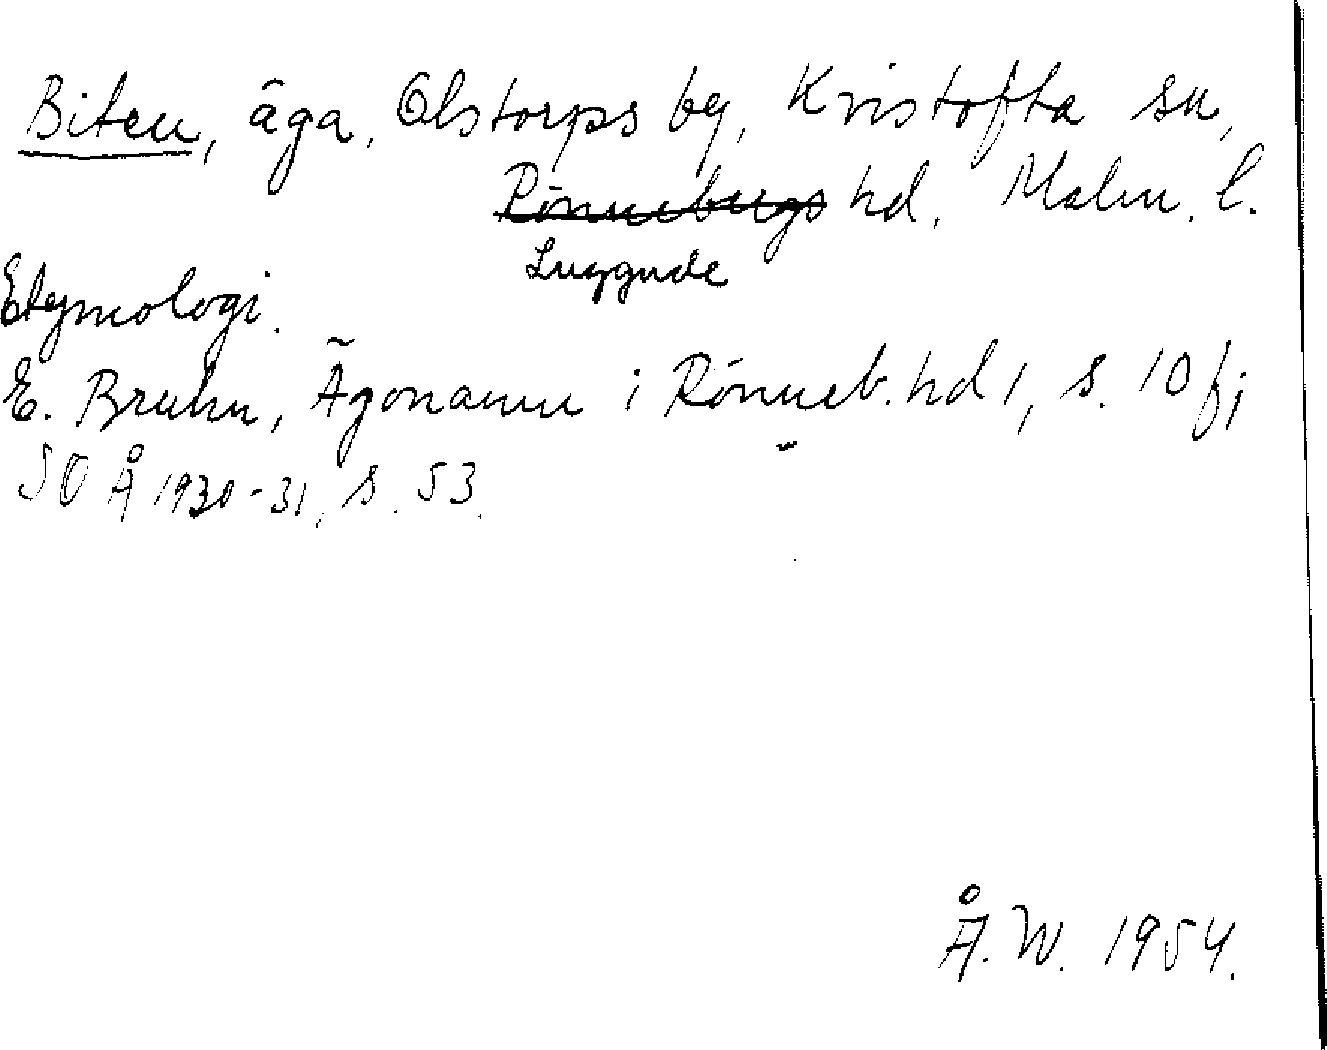 Biten, äga, Olstorps by, Kristofta sn,
Rönnebergs hd, Malm. l.
Luggude
Etymologi.
E. Bruhn, Ägonamn i Rönneb. hd 1, s. 10 f;
SOÅ 1930-31, s. 53.
Å. W. 1954.